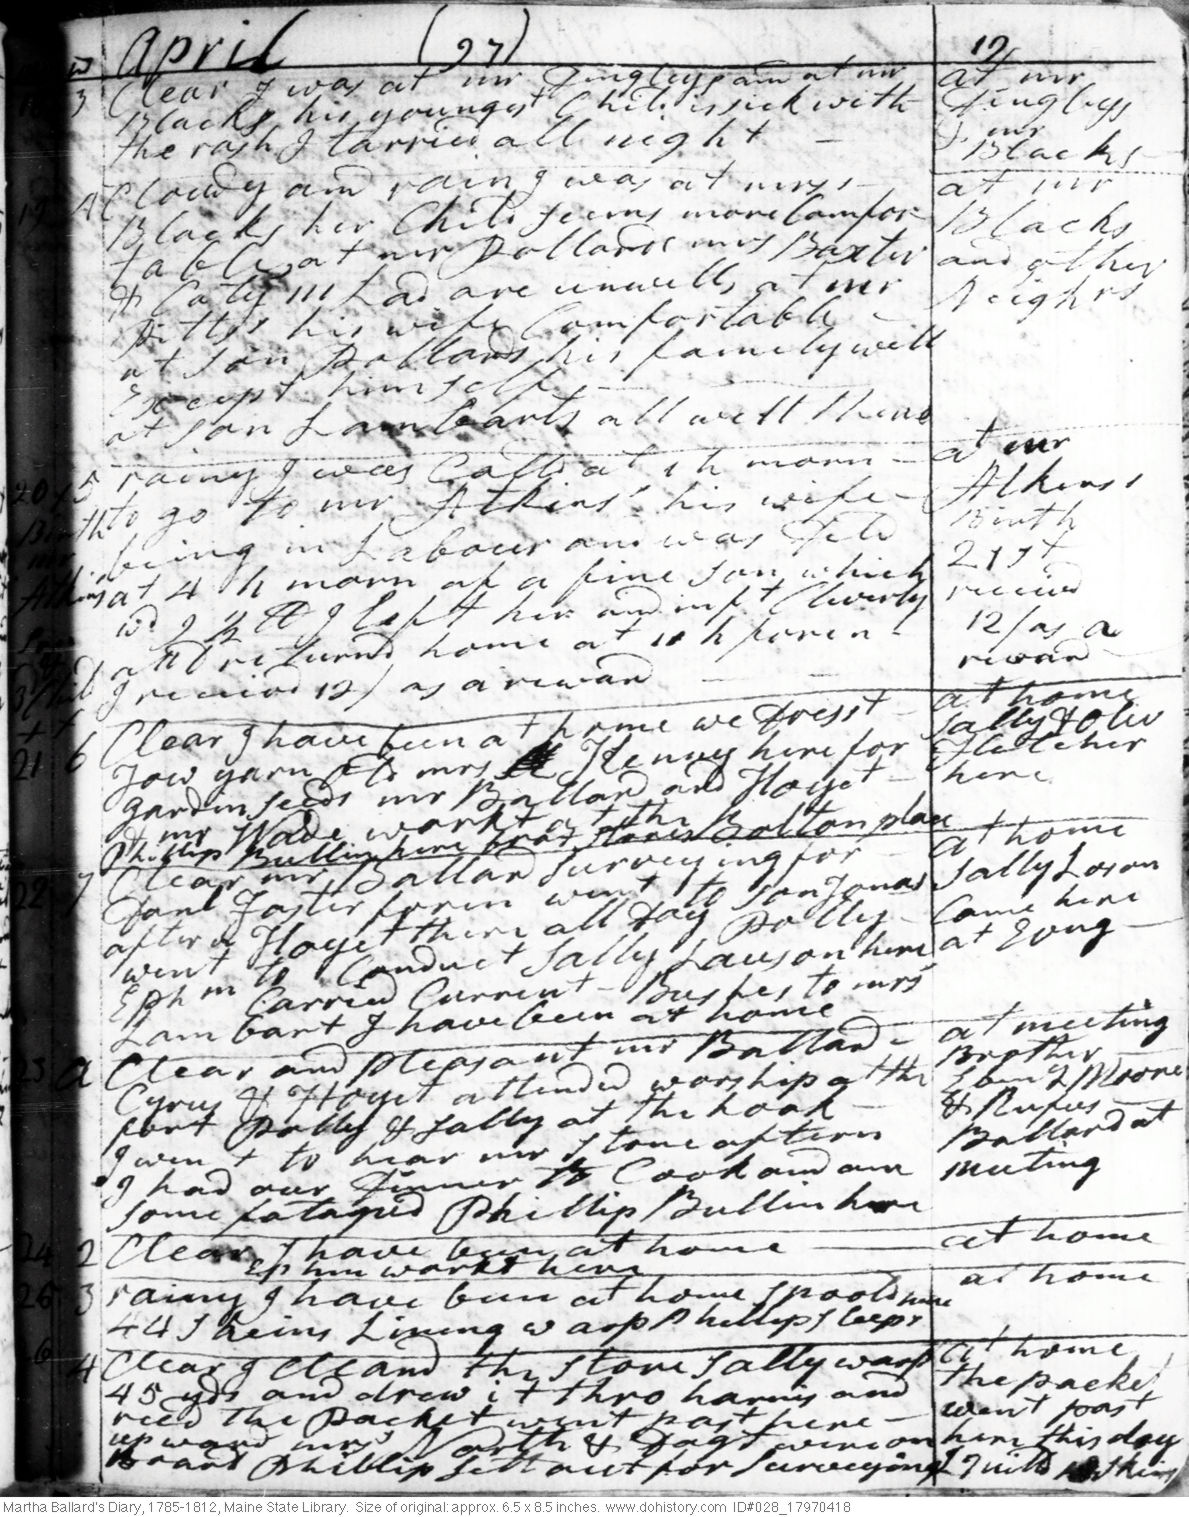 April (97) 12/
18 3 Clear I was at mr Tingleys am at mr
Blacks his youngest Child is sick with
the rash I tarried all night
at mr
Tingleys
& mr
Blacks
19 4 Cloudy and rain I was at mrs
Blacks her Child seems more Comfor
table, at mr Pollards mrs Baxter
& Caty mc Lad are unwell, at mr
Pitts's his wife Comfortable
at Son Pollards his family well
Except himself
at Son Lambarts all well there
at mr
Blacks
and other
Neighrs
20 5 rainy I was Calld at 1 h morn
Birth
mr
Atkins
to go to mr Atkins' his wife
being in Labour and was Deld
at 4 h morn of a fine Son which
wd 9 ½ lb I left her and inft Cleverly
and returnd home at 11 h foren
I receivd 12/ as a reward
at mr
Atkins's
Birth
21st
receivd
12/ as a
reward
21 6 Clear I have been at home we Dresst
Tow yarn &c mrs Kenney here for
gardin seeds mr Ballard and Hoyet
& mr Wade workt at the Bolton place
Phillip Bullin here brot stores
at home
Sally & Oliv
Fletcher
here
22 7 Clear mr Ballard Surveying for
Danl Foster foren went to Son Jonas
aftern Hoyet there all Day Polly
went to Conduct Sally Lawson here
Ephm Carried Current Bushes to mrs
Lambart I have been at home
at home
Sally Loson
Came here
at Evng
23 A Clear and pleasant mr Ballard
Cyrus & Hoyet attended worship at the
fort Polly & Sally at the hook
I went to hear mr Stone aftern
I had our Dinner to Cook and am
some fatagud Phillip Bullin here
at meeting
Brother
Ebenr Moore
& Rufus
Ballard at
meeting
24 2 Clear, I have been at home
Ephm workt here
at home
25 3 rainy I have been at home spoold
44 Skeins Lining warp Phillip Sleeps here
at home
26 4 Clear I Cleand the Store Sally warpt
45 yds and drew it thro harnis and
reed the Packet went past here
upward mrs North & Dagt were on
Board Phillip sett out for Surveying
at home
the packet
went past
here this day
Martha Ballard's Diary, 1785-1812, Maine State Library. Size of original: approx. 6.5 x 8.5 inches. www.dohistory.com ID#028_17970418